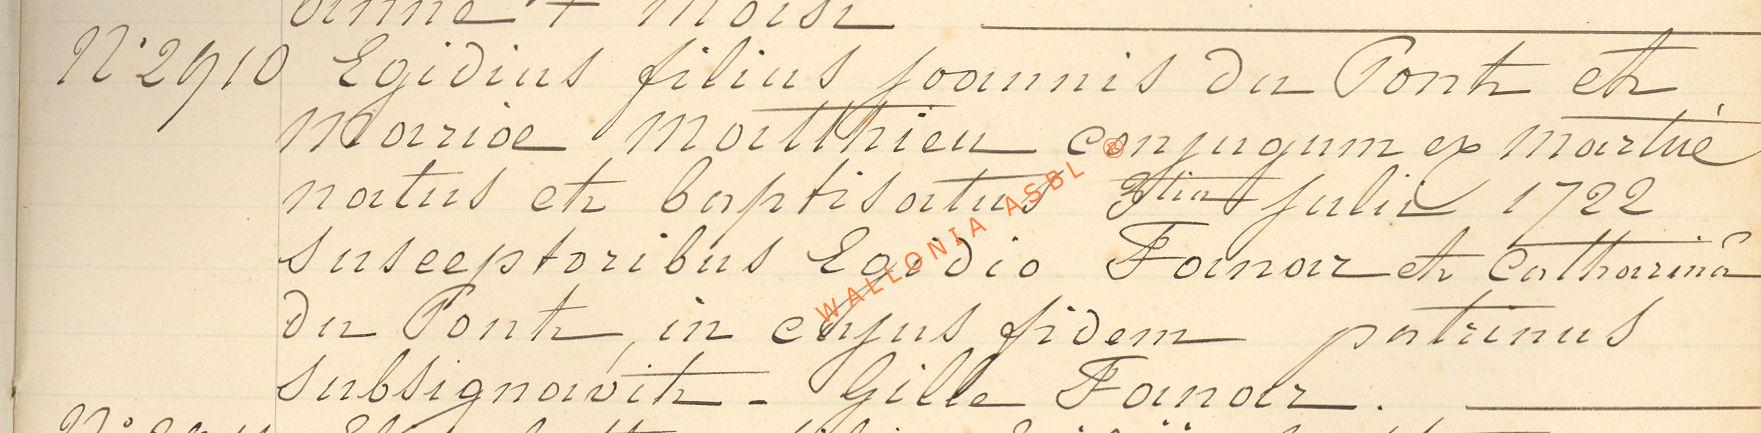 N° 2910 Egidius filius Joannis du Pont et
Mariae Matthieu conjugum ex Martué
natus et baptisatus Julii 1722
susceptoribus Egidio Fanar et Catharinâ
du Pont, in cujus fidem patrinus
subsignavit - Gille Fanar.
WALLONIA ASBL ®